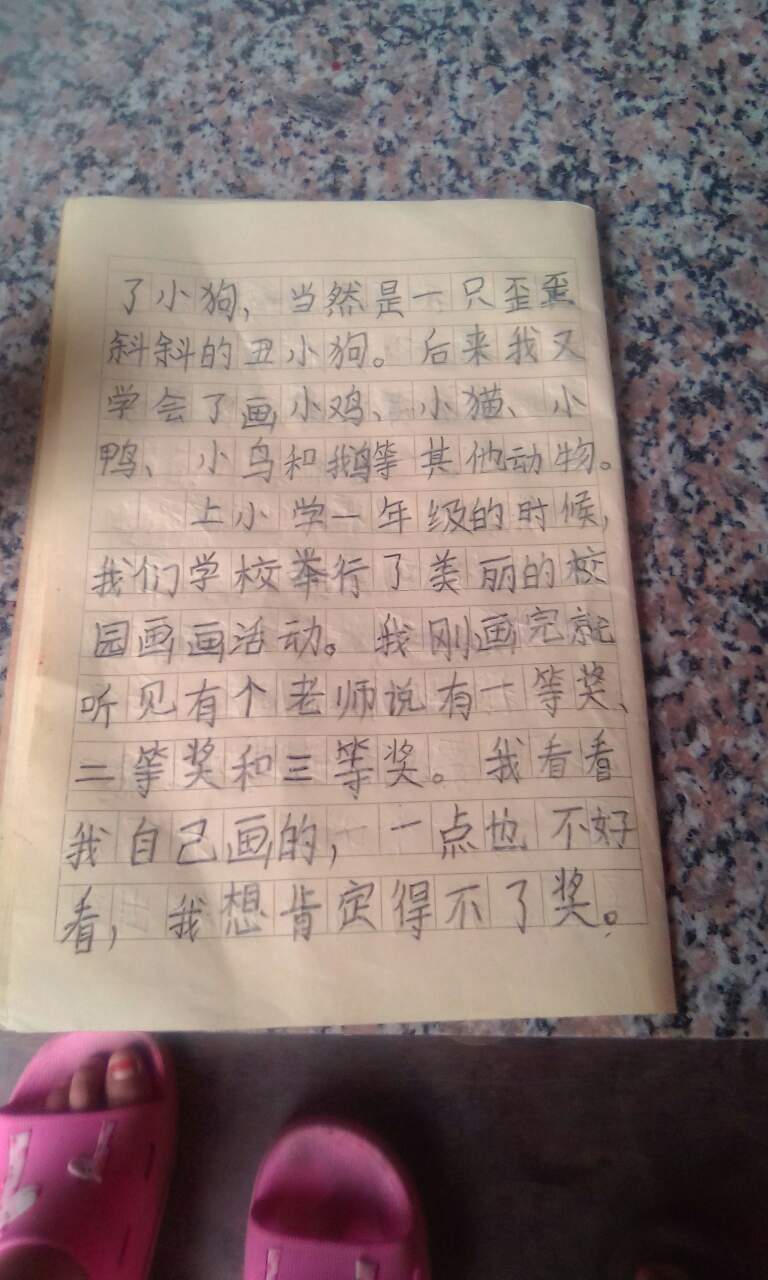 了小狗，当然是一只歪歪
斜斜的丑小狗。后来我又
学会了画小鸡、小猫、小
鸭、小鸟和鹅等其他动物。
上小学一年级的时候，
我们学校举行了美丽的校
园画画活动。我刚画完就
听见有个老师说有一等奖、
二等奖和三等奖。我看看
我自己画的，一点也不好
看，我想肯定得不了奖。